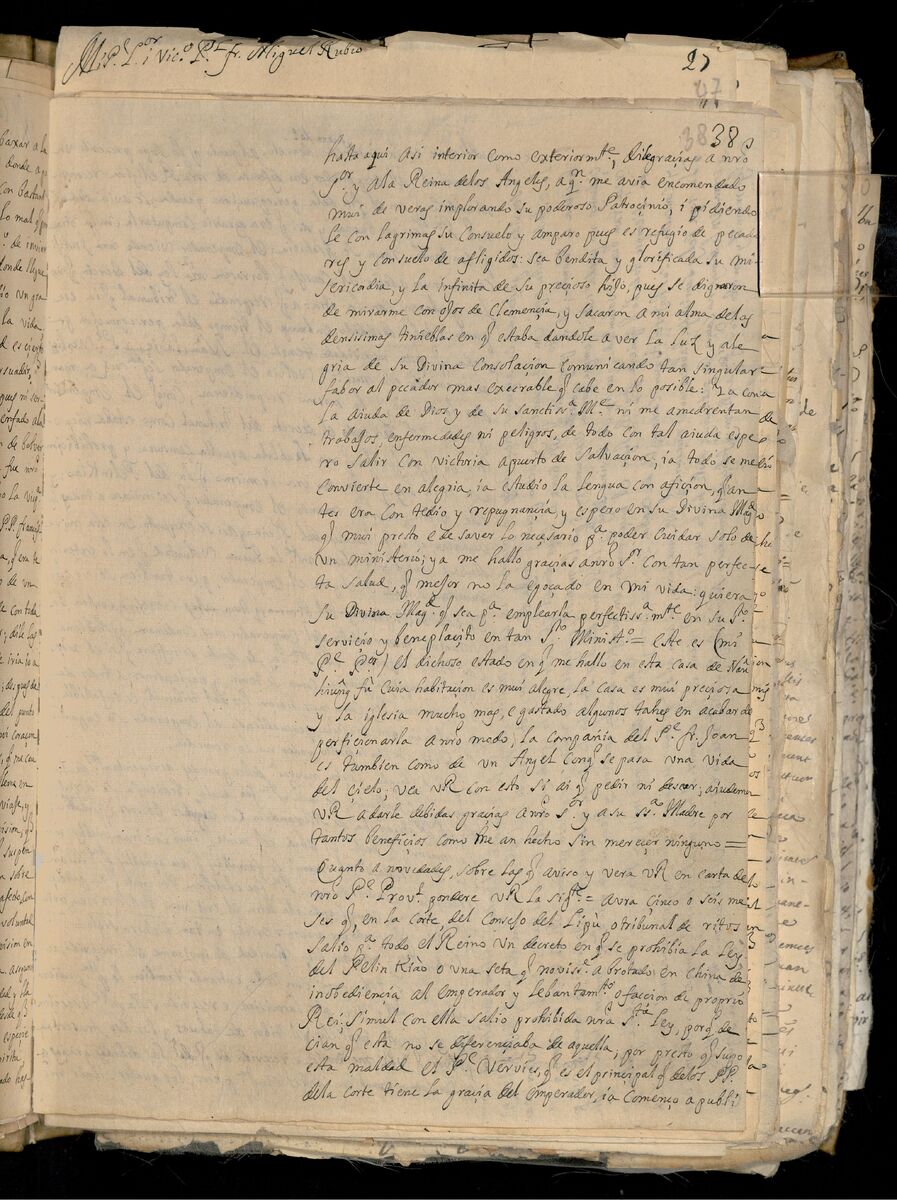 M. P. Por i Vico Pl fr. Miguel Rubio
27
67
38 38
hasta aqui asi interior como exteriormte, dile graçias a nro
Sor. y ala Reina delos Angeles, a qn me avia encomendado
mui de veras implorando su poderoso Patrocinio, i pidiendo
le con lagrimas su consuelo y amparo pues es refugio de pecado
res y consuelo de afligidos: sea bendita y glorificada su mi-
sericordia, y la infinita de su precioso hijo, pues se dignaron
de mirarme con ojos de clemençia, y sacaron a mi alma delas
densisimas tinieblas en q estaba dandole a ver la luz y ale
gria de su Divina Consolacion comunicando tan singular
fabor al pecador mas execrable q cabe en lo posible: ia con
la aiuda de Dios y de su sanctissa. Me ni me amedrentan
trabajos, enfermedades ni peligros, de todo con tal aiuda espe
ro salir con victoria a puerto de salvaçion, ia todo se me
convierte en alegria, ia estudio la lengua con afiçion, q an
tes era con tedio y repugnançia, y espero en su Divina Magd
q mui presto e de saver lo necesario pa poder cuidar solo de
un ministerio; ya me hallo graçias a nro Sr con tan perfec
ta salud, q mejor no la e goçado en mi vida: quiera
su Divina Magd q sea pa emplearla perfectissa.mte en su sto
servicio y beneplaçito en tan Sto Ministo = este es (mi
Pe Por) el dichoso estado en q me hallo en esta casa de Nan
hiung fu cuia habitacion es mui alegre, la casa es mui preciosa
y la iglesia mucho mas, e gastado algunos tahes en acabar de
perficionarla a nro modo, la compañia del Pe fr. Joan
es tambien como de un Angel con q se pasa una vida
del çielo; vea VR con esto si ai q pedir ni desear, aiudeme
VR a darle debidas graçias a nro Sor y a su ssa Madre por
tantos benefiçios como me an hecho sin mereçer ninguno =
Quanto a novedades, sobre las q aviso y vera VR en carta de
nro Pe Provl. pondere VR la sigte = avra çinco o seis me
ses q, en la corte del Consejo del Lipù, o tribunal de ritos
salio pa todo el Reino un decreto en q se prohibia la ley
del Pelin Kiào o una seta q novisa. a brotado en china de
inobediençia al emperador y lebantamto o faccion de proprio
Rei; simul con ella salio prohibida nra Sta Ley, porq de
cian q esta no se diferençiaba de aquella, por presto q supo
esta maldad el Pe Vervies, q es el principal q delos PP.
dela corte tiene la graçia del emperador, ia començo a publi